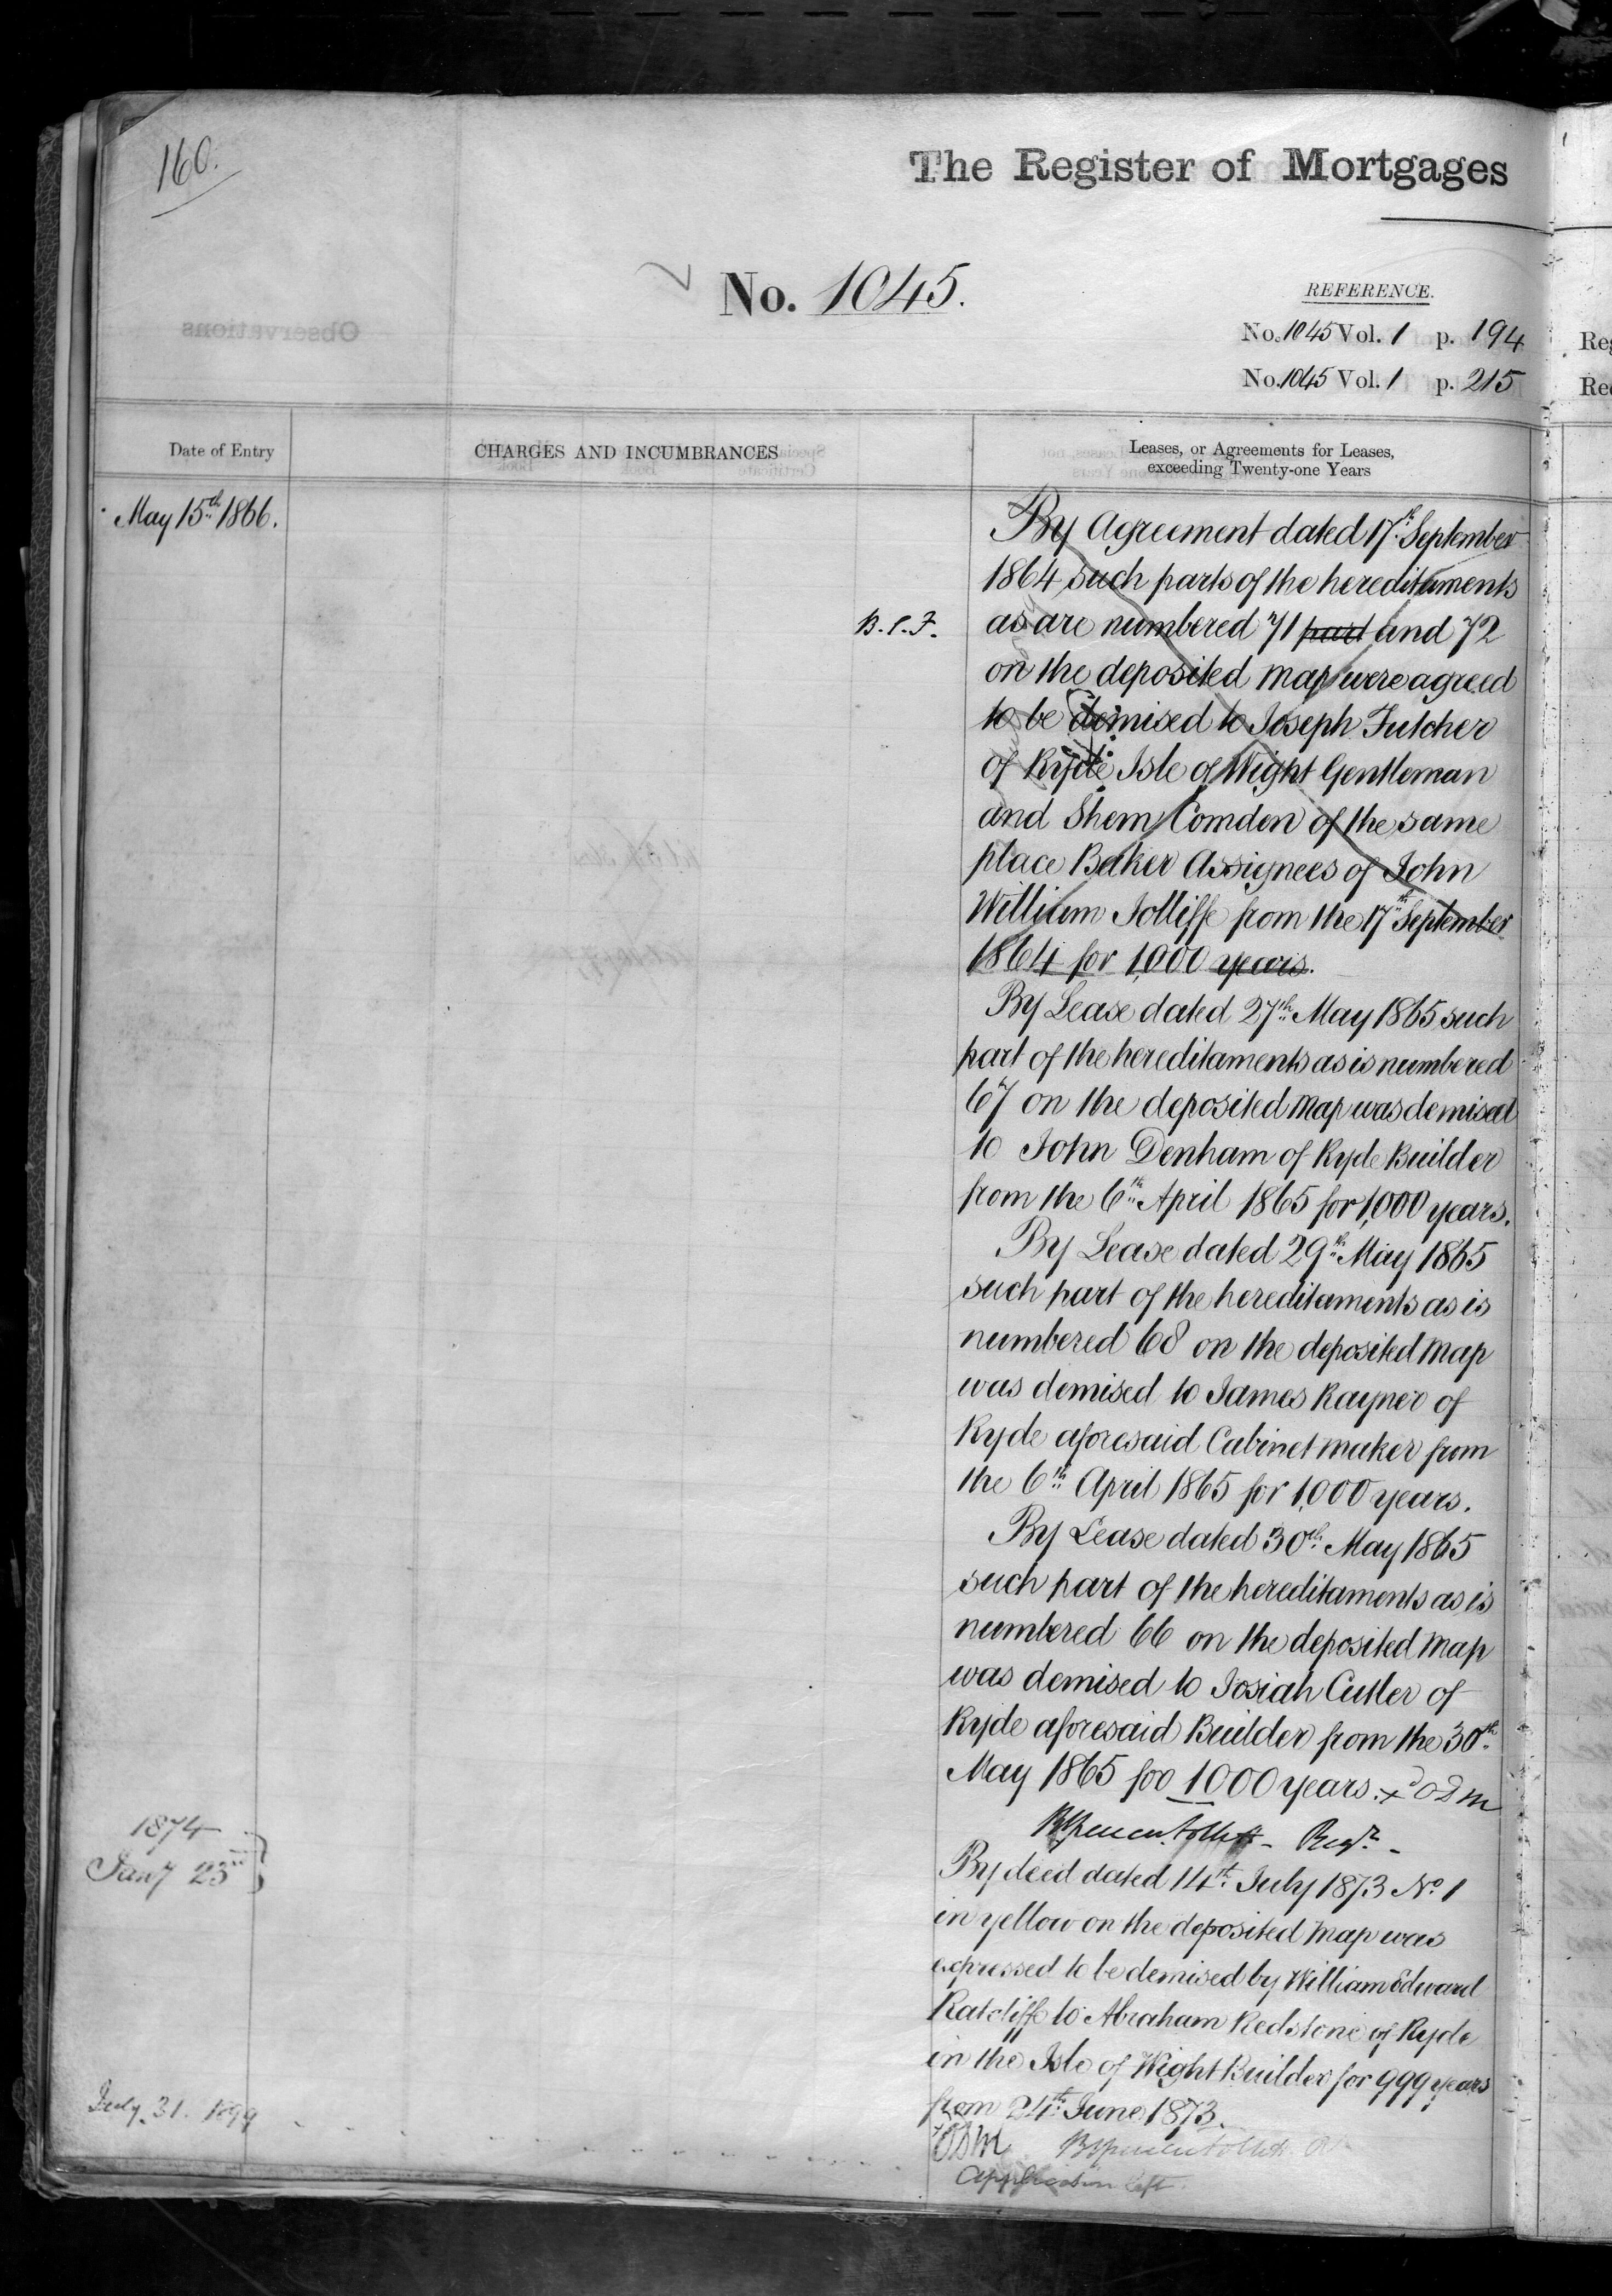 160.
The Register of Mortgages
No. 1045.
REFERENCE.
No. 1045 Vol. 1 p. 194
No. 1045 Vol. 1 p. 215
Date of Entry
CHARGES AND INCUMBRANCES
Leases, or Agreements for Leases,
exceeding Twenty-one Years
May 15th 1866.
By Agreement dated 17th September
1864 such parts of the hereditaments
B.P.F.
as are numbered 71 part and 72
on the deposited map were agreed
to be demised to Joseph Futcher
of Ryde Isle of Wight Gentleman
and Shem Comden of the same
place Baker Assignees of John
William Jolliffe from the 17th September
1864 for 1,000 years.
By Lease dated 27th May 1865 such
part of the hereditaments as is numbered
67 on the deposited map was demised
to John Denham of Ryde Builder
from the 6th April 1865 for 1,000 years.
By Lease dated 29th May 1865
such part of the hereditaments as is
numbered 68 on the deposited map
was demised to James Rayner of
Ryde aforesaid Cabinet maker from
the 6th April 1865 for 1,000 years.
By Lease dated 30th May 1865
such part of the hereditaments as is
numbered 66 on the deposited map
was demised to Josiah Cutler of
Ryde aforesaid Builder from the 30th
May 1865 for 1000 years.
Regr.
1874
Jany 23rd
By deed dated 14th July 1873 No. 1
in yellow on the deposited map was
expressed to be demised by William Edward
Ratcliffe to Abraham Redstone of Ryde
in the Isle of Wight Builder for 999 years
from 24th June 1873.
July 31. 1899
Application left.